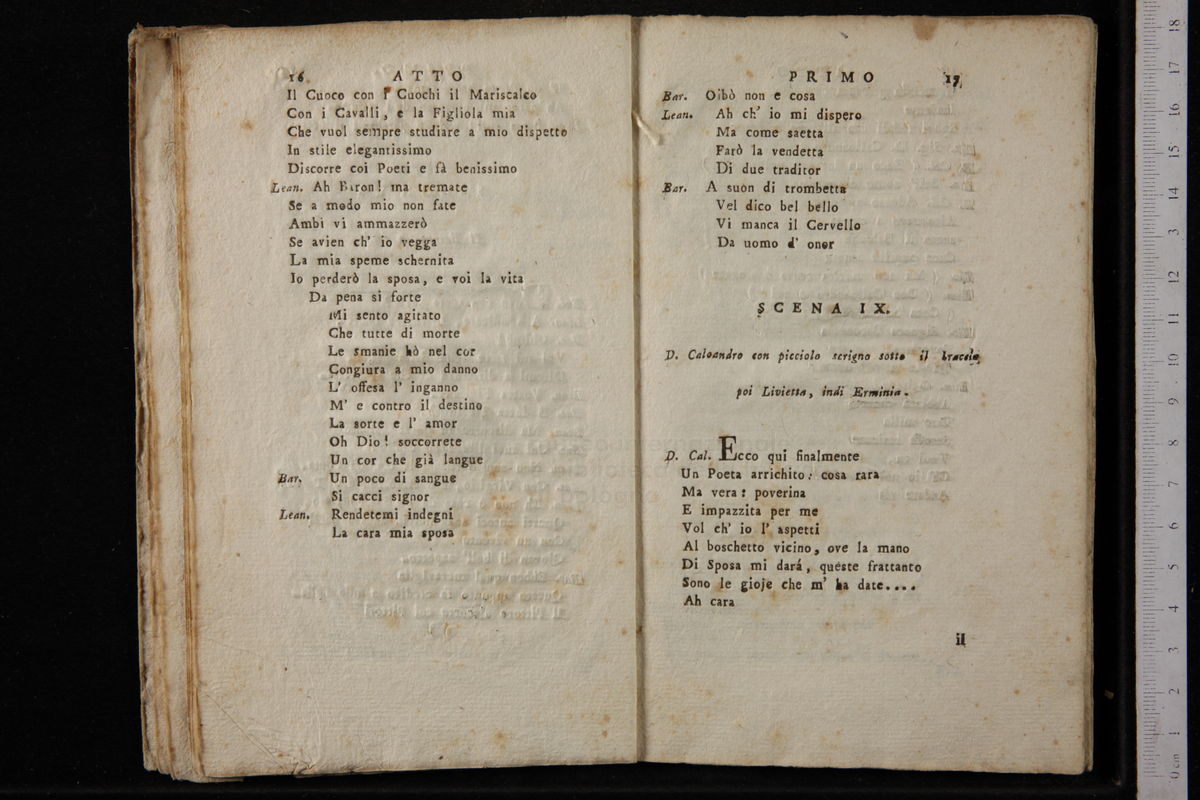 16 ATTO
Il Cuoco con i Cuochi il Mariscalco
Con i Cavalli, e la Figliola mia
Che vuol sempre studiare a mio dispetto
In stile elegantissimo
Discorre coi Poeti e fà benissimo
Lean. Ah Baron! ma tremate
Se a modo mio non fate
Ambi vi ammazzerò
Se avien ch' io vegga
La mia speme schernita
Io perderò la sposa, e voi la vita
Da pena si forte
Mi sento agitato
Che tutte di morte
Le smanie hò nel cor
Congiura a mio danno
L' offesa l' inganno
M' e contro il destino
La sorte e l' amor
Oh Dio! soccorrete
Un cor che già langue
Bar. Un poco di sangue
Si cacci signor
Lean. Rendetemi indegni
La cara mia sposa
PRIMO 17
Bar. Oibò non e cosa
Lean. Ah ch' io mi dispero
Ma come saetta
Farò la vendetta
Di due traditor
Bar. A suon di trombetta
Vel dico bel bello
Vi manca il Cervello
Da uomo d' onor
SCENA IX.
D. Caloandro con picciolo scrigno sotto il braccio
poi Livietta, indi Erminia.
D. Cal. Ecco qui finalmente
Un Poeta arrichito: cosa rara
Ma vera: poverina
E impazzita per me
Vol ch' io l' aspetti
Al boschetto vicino, ove la mano
Di Sposa mi dará, queste frattanto
Sono le gioje che m' ha date....
Ah cara
il
0 cm 1 2 3 4 5 6 7 8 9 10 11 12 13 14 15 16 17 18